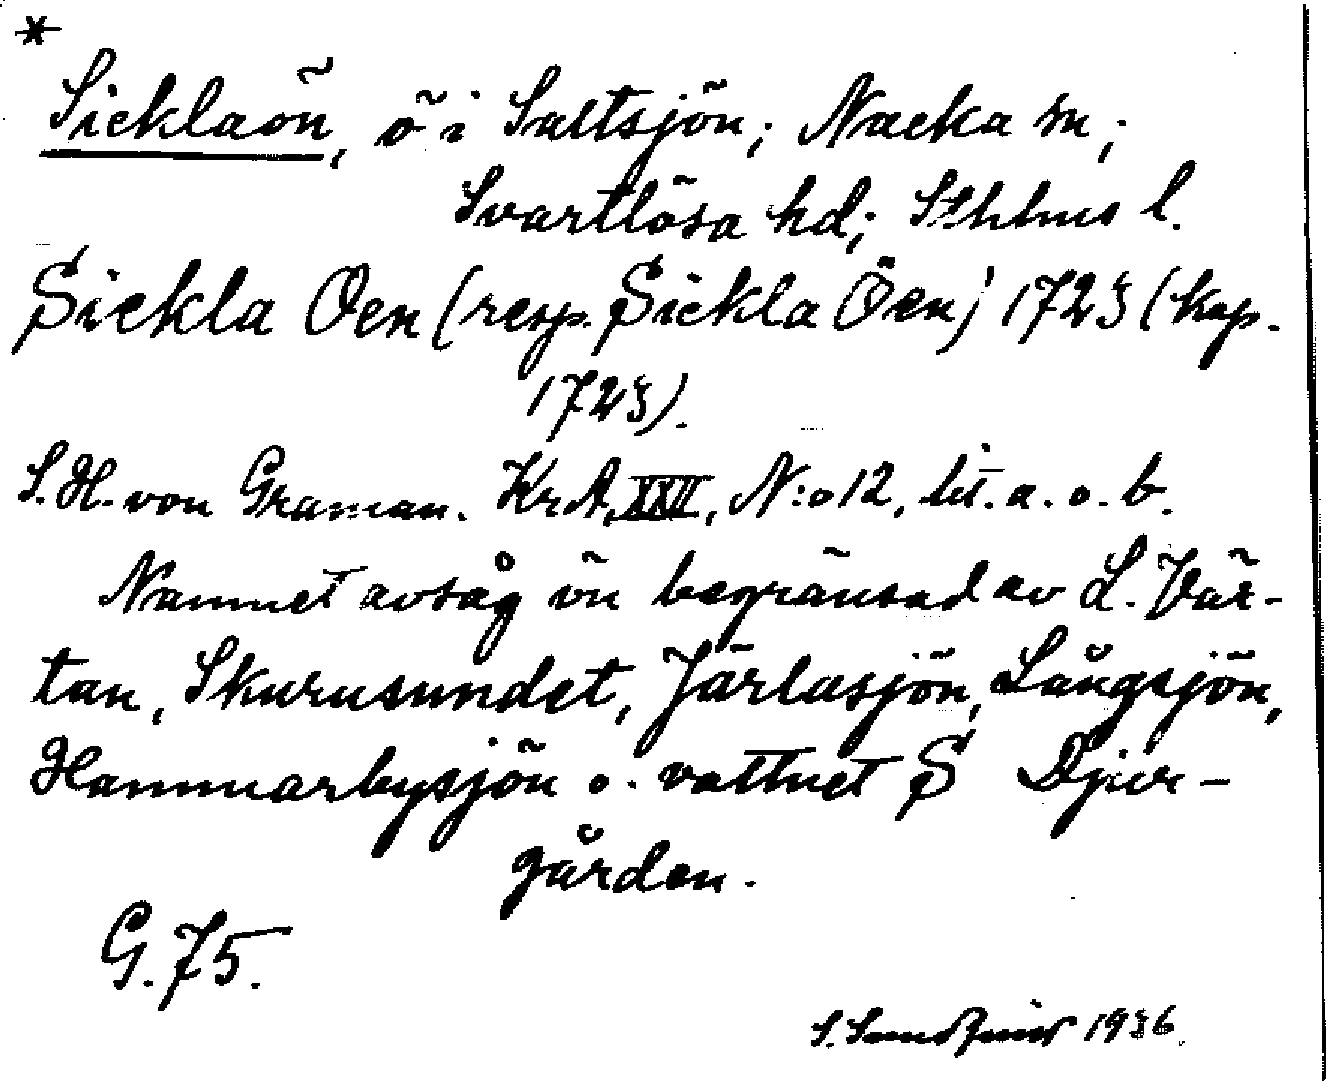 *
Sicklaön, ö i Saltsjön; Nacka sn;
Svartlösa hd; Sthlms l.
Sickla Öen (resp. Sickla Öen) 1723 (kop.
1723).
S. H. von Graman. KrA, XXII, N:o 12, lit. a. o. b.
Namnet avsåg ön begränsad av L. Vär-
tan, Skurusundet, Järlasjön, Långsjön,
Hammarbysjön o. vattnet S Djur-
gården.
G. 75.
S. 1936.